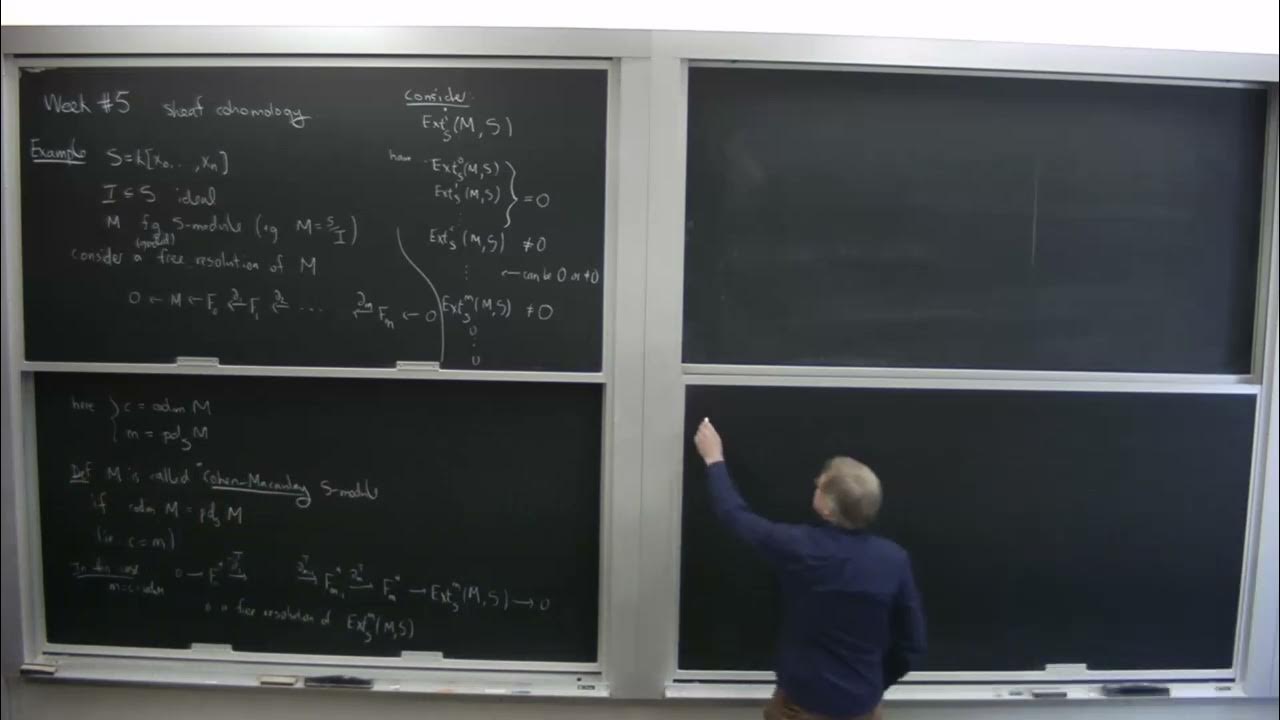 Week #5 sheaf cohomology
Example S=k[x₀..,xₙ]
I ⊆ S ideal
M fg S-module (eg M=S/I)
(graded)
consider a free resolution of M
0 ← M ← F₀ ←∂₁ F₁ ←∂₂ ... ←∂ₘ Fₘ ← 0
Consider:
Extⁱ_S(M,S)
have
Ext⁰_S(M,S)
Ext¹_S(M,S) } = 0
⋮
Extᶜ_S(M,S) ≠0
⋮ ← can be 0 or ≠0
Extᵐ_S(M,S) ≠0
0
⋮
0
here { c = codim M
m = pd_S M
Def M is called "Cohen-Macaulay S-module
if codim M = pd_S M
(ie c=m)
In this case
m=c=codim
0 → F₀* →∂₁ᵀ →∂ₘ₋₁ᵀ Fₘ₋₁* →∂ₘᵀ Fₘ* → Extᵐ_S(M,S) → 0
is free resolution of Extᵐ_S(M,S)